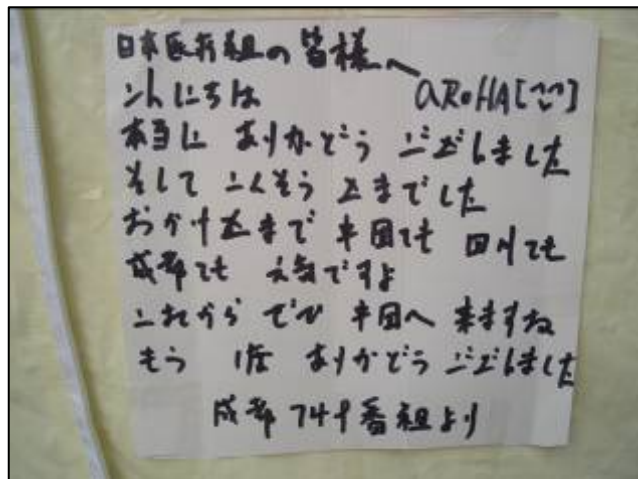 日本医疗組の皆様へ
こんにちは aRoHA[^^]
本当に ありがどう ございしました
そして ごくそう さまでした
おかけさまで 中国ても 四川ても
成都ても 元気ですよ
これから ぜひ 中国へ 来ますね
もう 1度 ありかどう ございしました
成都 74中番組より